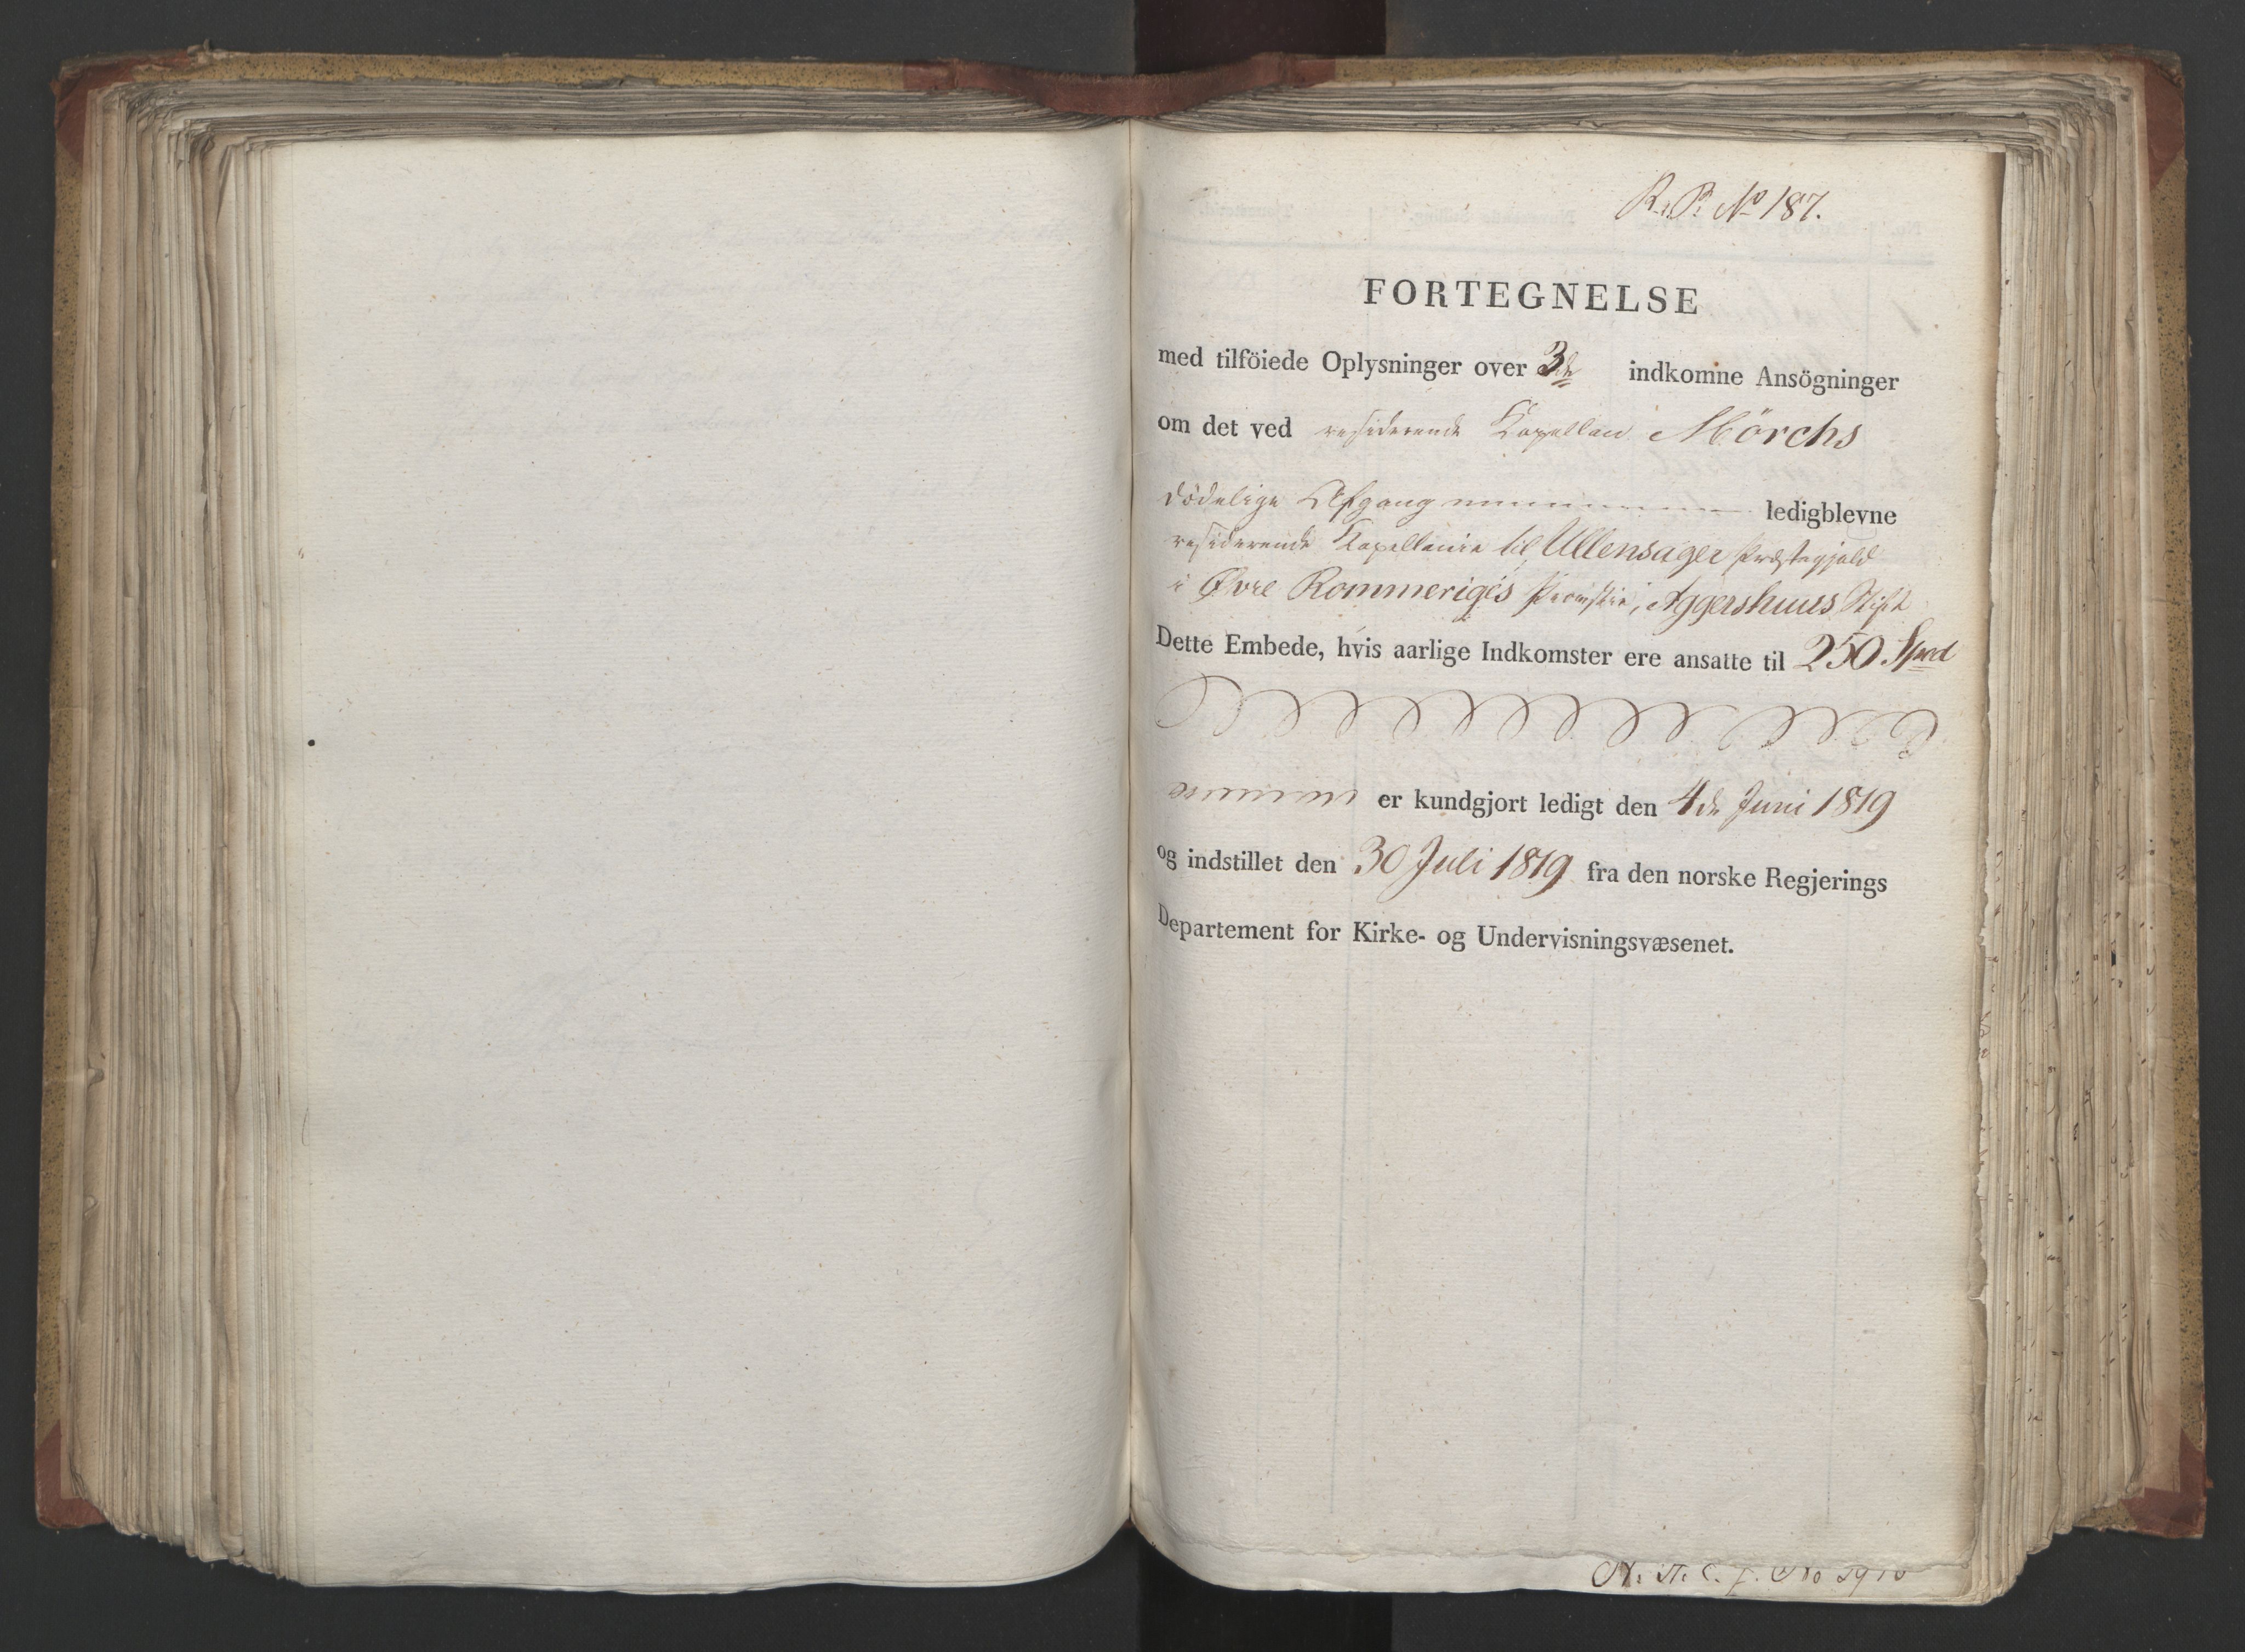 R. P. No 187.
FORTEGNELSE
med tilföiede Oplysninger over 3de indkomne Ansögninger
om det ved residerende Kapellan Mörchs
dödelige Afgang ledigblevne
residerende Kapellanie til Ullensager Præstegjeld
i Øvre Rommeriges Provstie, Aggershuus Stift
Dette Embede, hvis aarlige Indkomster ere ansatte til 250 Spd
er kundgjort ledigt den 4de Juni 1819
og indstillet den 30 Juli 1819 fra den norske Regjerings
Departement for Kirke- og Undervisningsvæsenet.